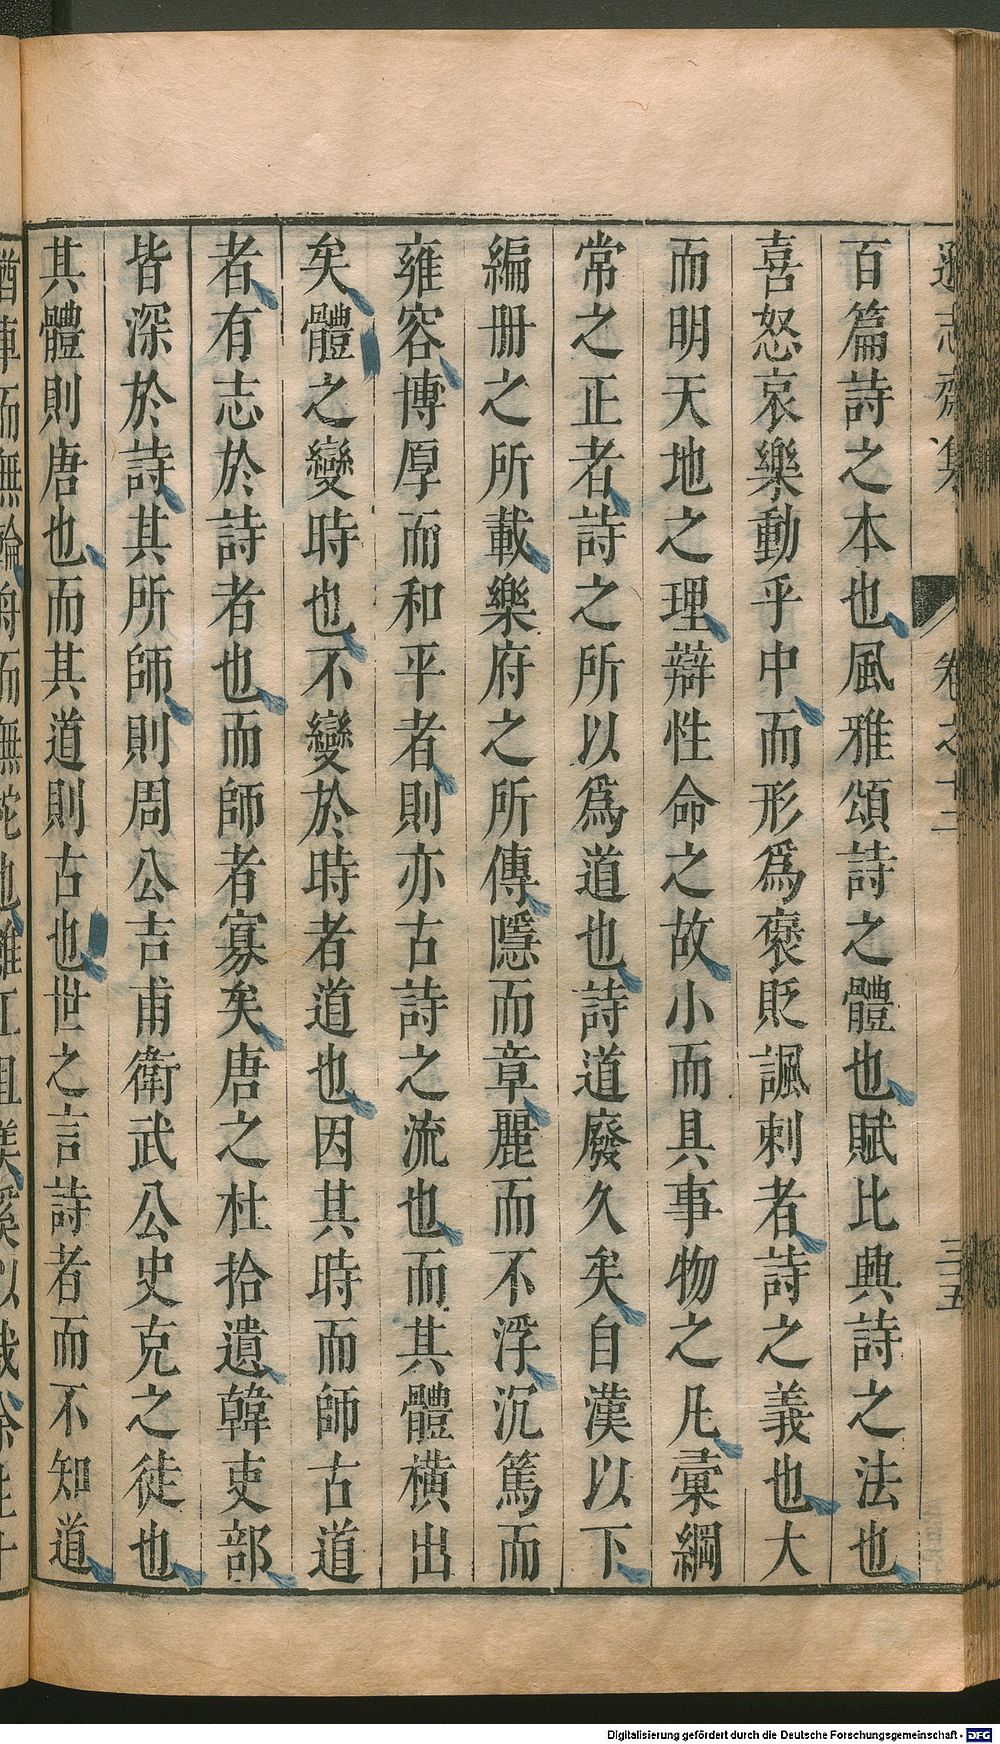 百篇詩之本也風雅頌詩之體也賦比興詩之法也
喜怒哀樂動乎中而形爲褒貶諷刺者詩之義也大
而明天地之理辯性命之故小而具事物之凡彙綱
常之正者詩之所以爲道也詩道廢久矣自漢以下
編册之所載樂府之所傳隱而章麗而不浮沉篤而
雍容博厚而和平者則亦古詩之流也而其體橫出
矣體之變時也不變於時者道也因其時而師古道
者有志於詩者也而師者寡矣唐之杜拾遺韓吏部
皆深於詩其所師則周公吉甫衛武公史克之徒也
其體則唐也而其道則古也世之言詩者而不知道
遜志齋集 卷之十二 三五
Digitalisierung gefördert durch die Deutsche Forschungsgemeinschaft - DFG